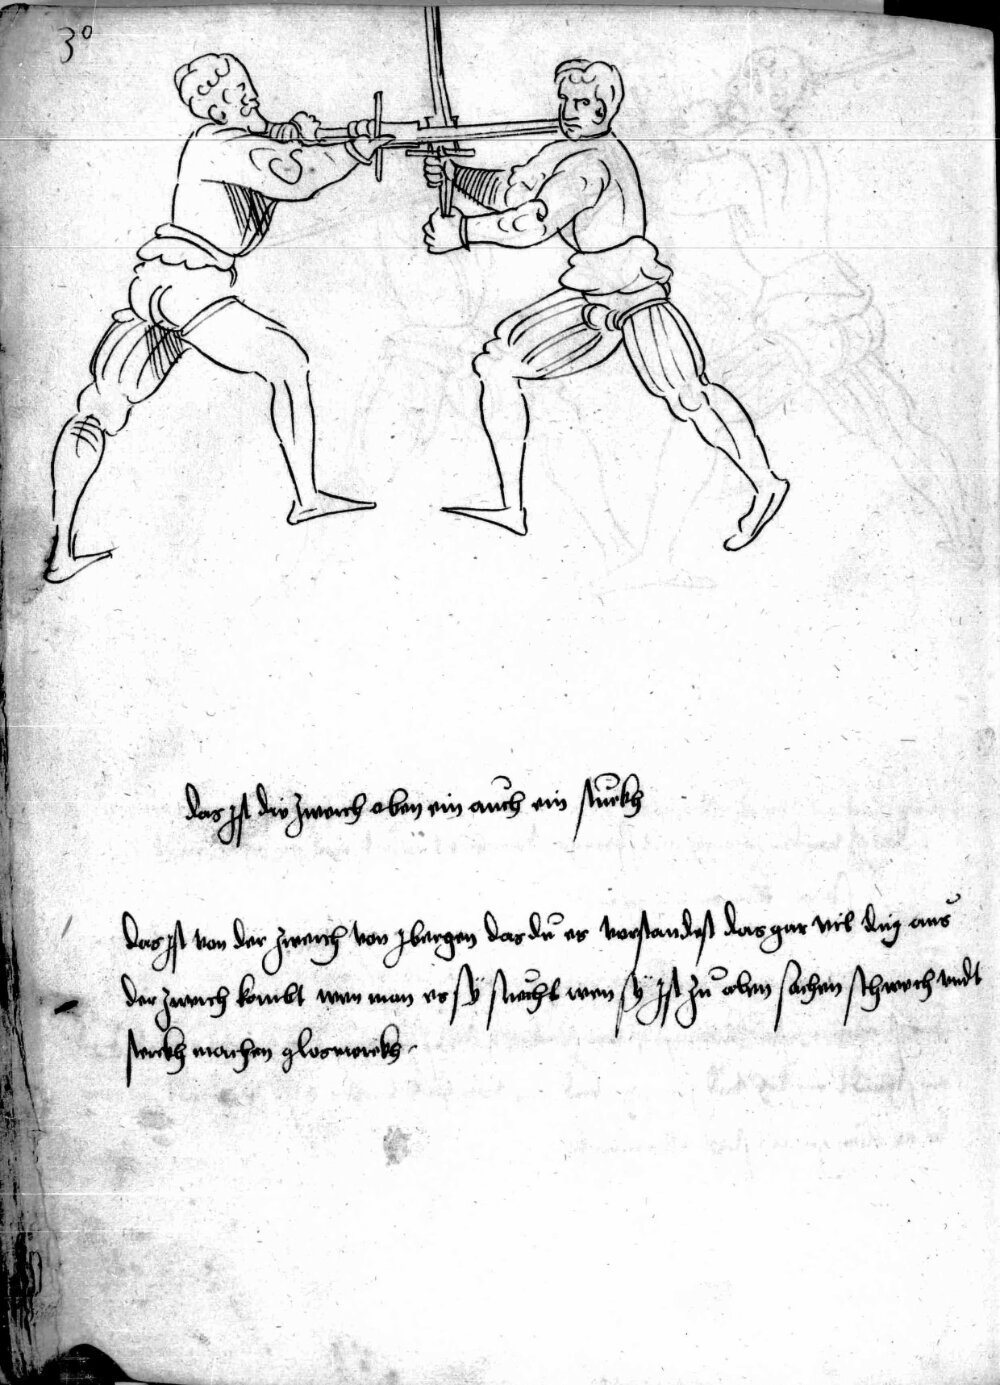 30
das Jst die zwerch oben ein auch ein stuckh
das Jst von der zwerch von Jbergen das du es vorstandest das gar vil ding aus
der zwerch kombt wen man es sÿ suecht wen sÿ Jst zu oben sachen schwech vndt
sterckh machen glos merckh